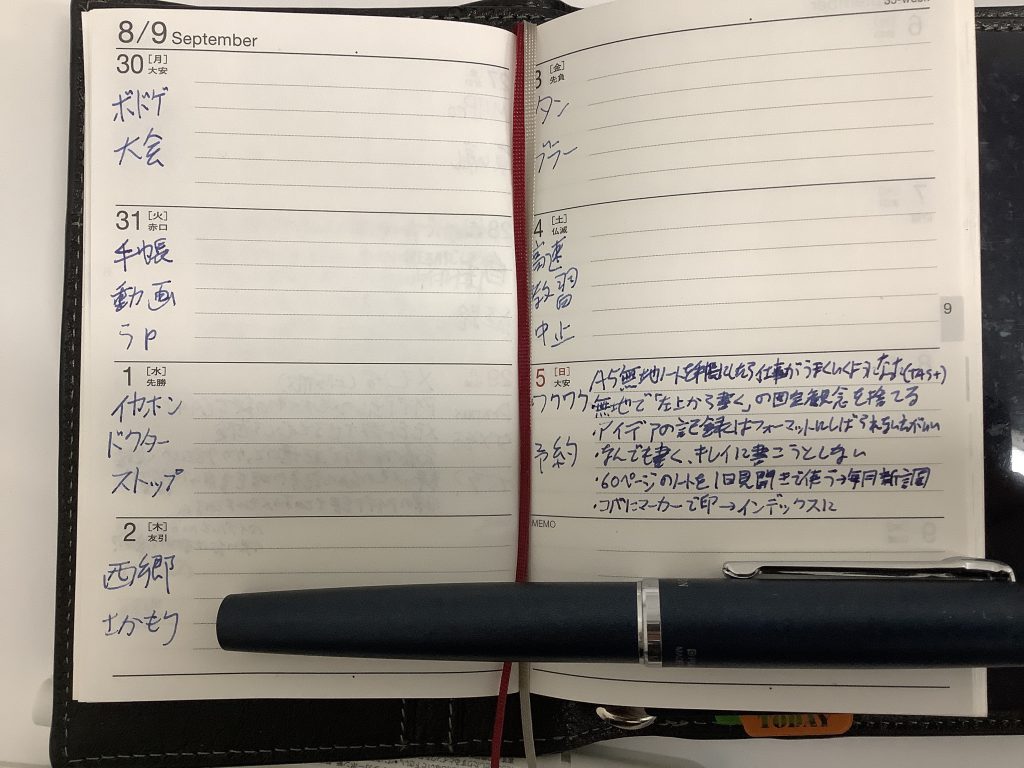 8/9 September
30 [月] 大安
ボドゲ
大会
31 [火] 赤口
手帳
動画
うp
1 [水] 先勝
イカホン
ドクター
ストップ
2 [木] 友引
西郷
さかもり
3 [金] 先負
タン
ブラー
4 [土] 仏滅
高速
教習
中止
9
5 [日] 大安
ワクワク
予約
A5無地ノートを手帳にしたら仕事がうまくいくように
・無地で「左上から書く」の固定観念を捨てる
アイデアの記録はフォーマットにしばられない方がいい
・なんでも書く、キレイに書こうとしない
・60ページのノートを1日見開きで使う→毎月新調
・コバにマーカーで印→インデックスに
MEMO
TODAY